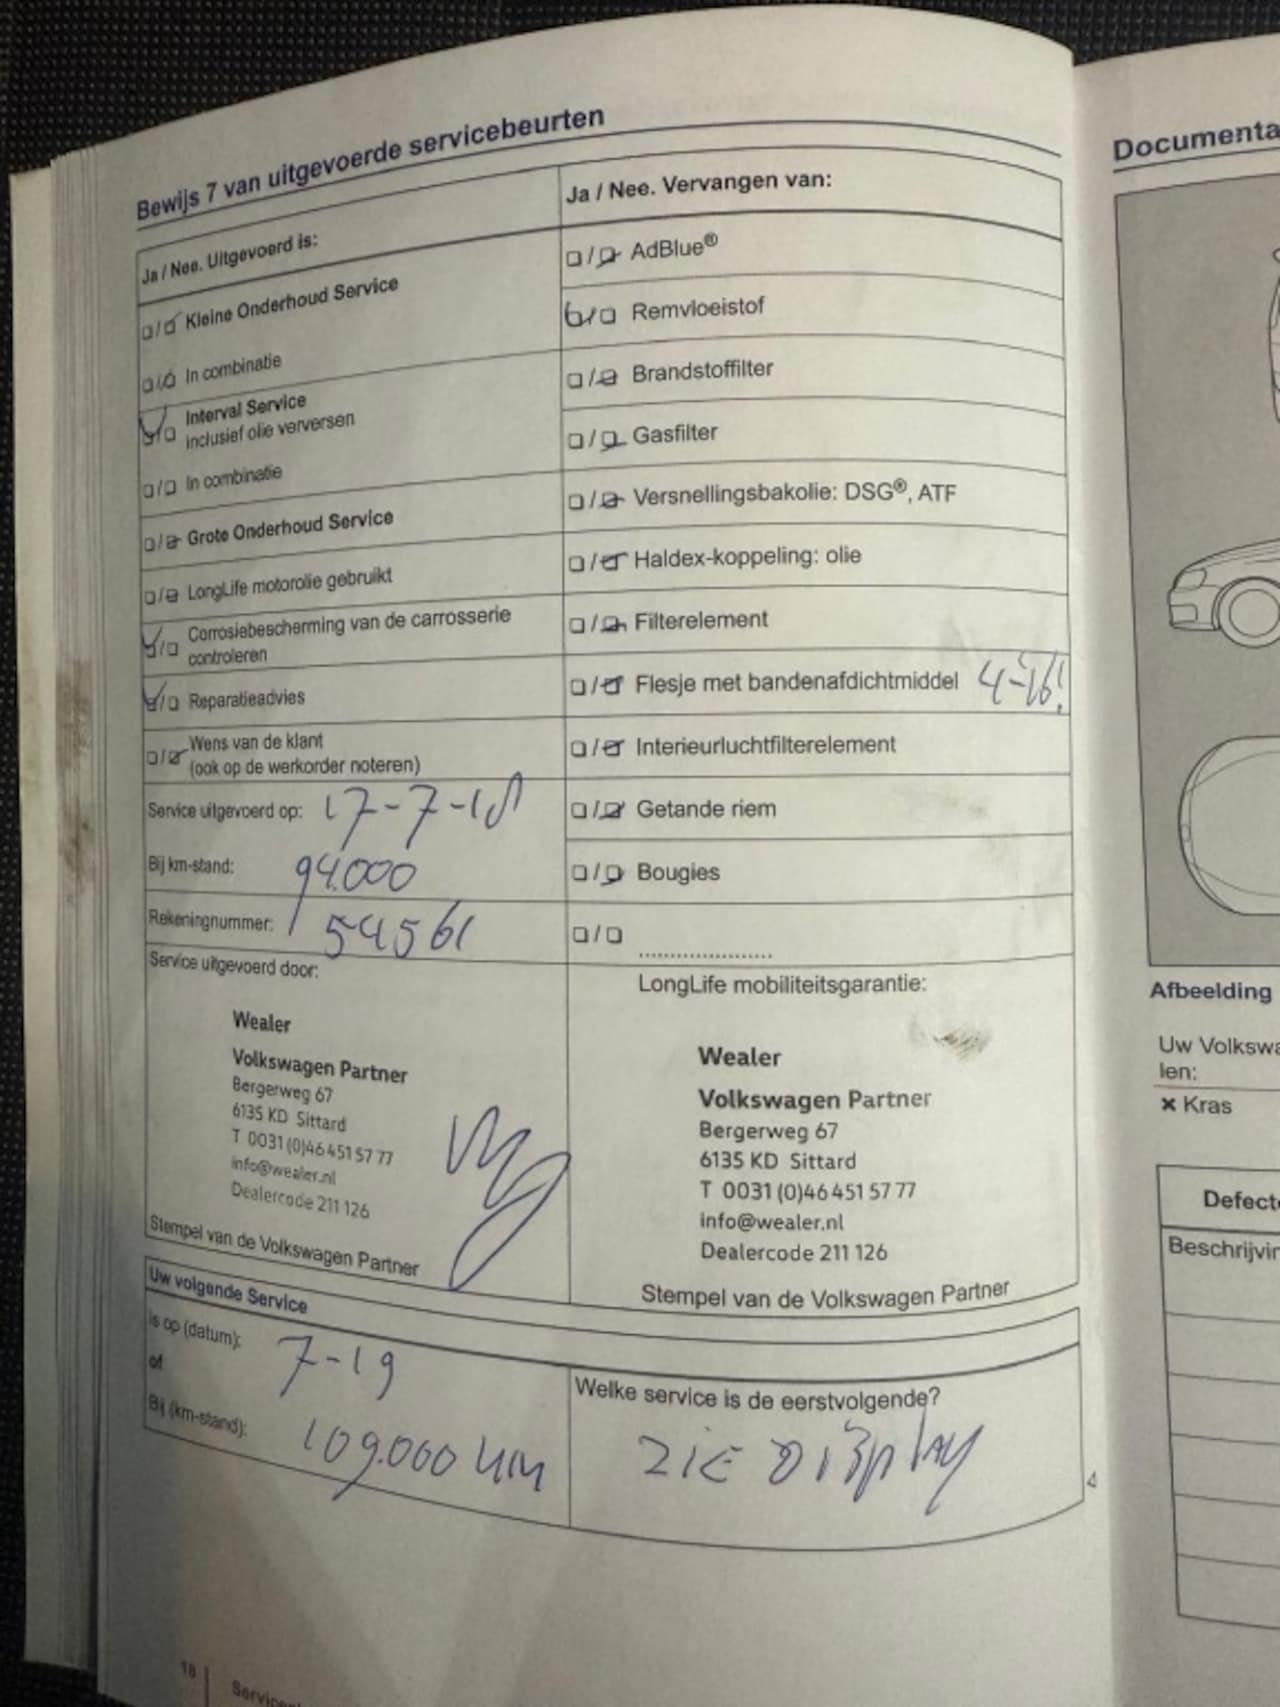 Bewijs 7 van uitgevoerde servicebeurten
Ja / Nee. Uitgevoerd is:
Kleine Onderhoud Service
In combinatie
Interval Service
inclusief olie verversen
In combinatie
Grote Onderhoud Service
LongLife motorolie gebruikt
Corrosiebescherming van de carrosserie
controleren
Reparatieadvies
Wens van de klant
(ook op de werkorder noteren)
Service uitgevoerd op: 17-7-18
Bij km-stand: 94.000
Rekeningnummer: 54561
Service uitgevoerd door:
Wealer
Volkswagen Partner
Bergerweg 67
6135 KD Sittard
T 0031 (0)46 451 57 77
info@wealer.nl
Dealercode 211 126
Stempel van de Volkswagen Partner
Ja / Nee. Vervangen van:
AdBlue®
Remvloeistof
Brandstoffilter
Gasfilter
Versnellingsbakolie: DSG®, ATF
Haldex-koppeling: olie
Filterelement
Flesje met bandenafdichtmiddel 4-16!
Interieurluchtfilterelement
Getande riem
Bougies
LongLife mobiliteitsgarantie:
Wealer
Volkswagen Partner
Bergerweg 67
6135 KD Sittard
T 0031 (0)46 451 57 77
info@wealer.nl
Dealercode 211 126
Stempel van de Volkswagen Partner
Uw volgende Service
is op (datum): 7-19
of
Bij (km-stand): 109.000 km
Welke service is de eerstvolgende?
ZIE DISPLAY
18
Documenta
Afbeelding
Uw Volkswa
len:
× Kras
Defecte
Beschrijvin